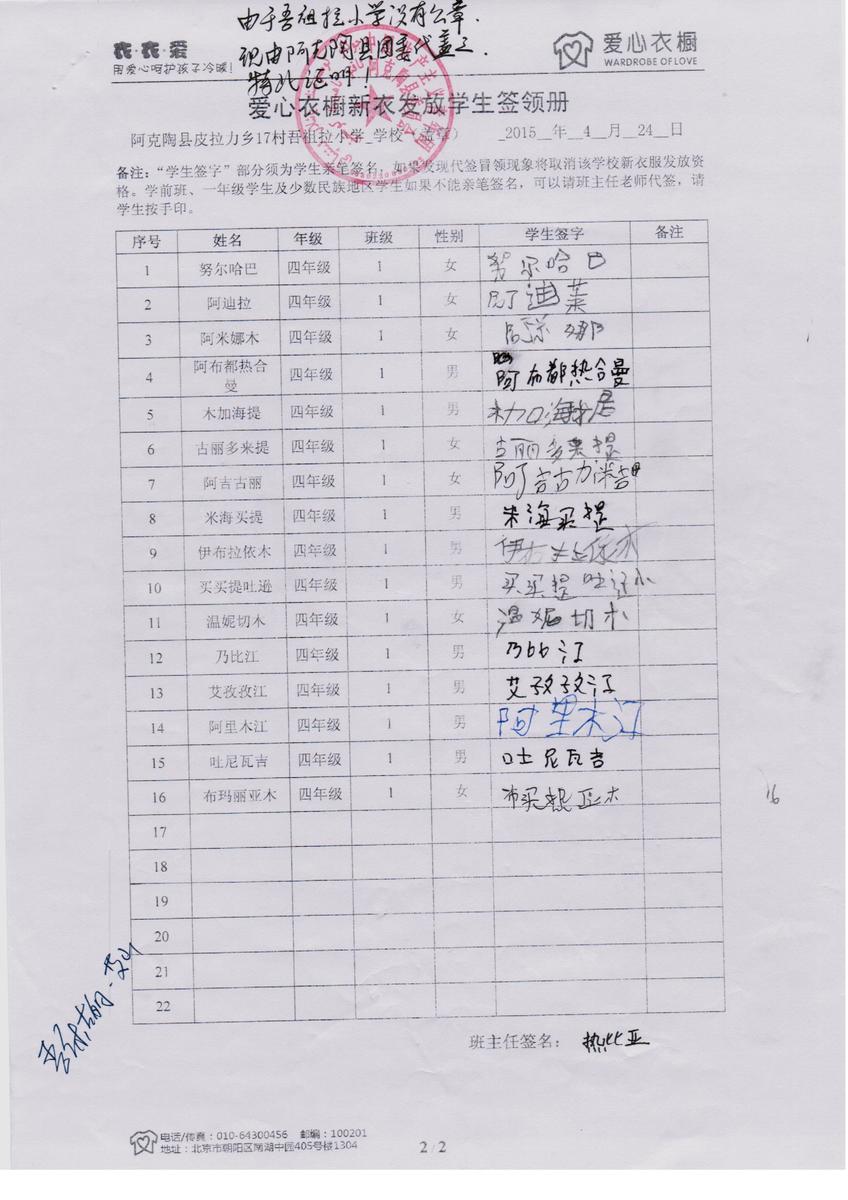 由于吾祖拉小学没有公章.
现由阿克陶县团委代盖之.
特此证明!
衣·衣·爱
用爱心呵护孩子冷暖!
爱心衣橱
WARDROBE OF LOVE
爱心衣橱新衣发放学生签领册
阿克陶县皮拉力乡17村吾祖拉小学_学校（盖章） _2015__年__4__月__24__日
备注:“学生签字”部分须为学生亲笔签名,如果发现代签冒领现象将取消该学校新衣服发放资
格。学前班、一年级学生及少数民族地区学生如果不能亲笔签名,可以请班主任老师代签,请
学生按手印。
序号 姓名 年级 班级 性别 学生签字 备注
1 努尔哈巴 四年级 1 女 努尔哈巴
2 阿迪拉 四年级 1 女 阿迪莱
3 阿米娜木 四年级 1 女
4 阿布都热合曼 四年级 1 男 阿布都热合曼
5 木加海提 四年级 1 男
6 古丽多来提 四年级 1 女 古丽多来提
7 阿吉古丽 四年级 1 女
8 米海买提 四年级 1 男 米海买提
9 伊布拉依木 四年级 1 男
10 买买提吐逊 四年级 1 男 买买提吐逊
11 温妮切木 四年级 1 女 温妮切木
12 乃比江 四年级 1 男 乃比江
13 艾孜孜江 四年级 1 男 艾孜孜江
14 阿里木江 四年级 1 男 阿里木江
15 吐尼瓦吉 四年级 1 男 吐尼瓦吉
16 布玛丽亚木 四年级 1 女
16
17
18
19
20
21
22
班主任签名: 热比亚
电话/传真:010-64300456 邮编:100201
地址:北京市朝阳区南湖中园405号楼1304
2 / 2